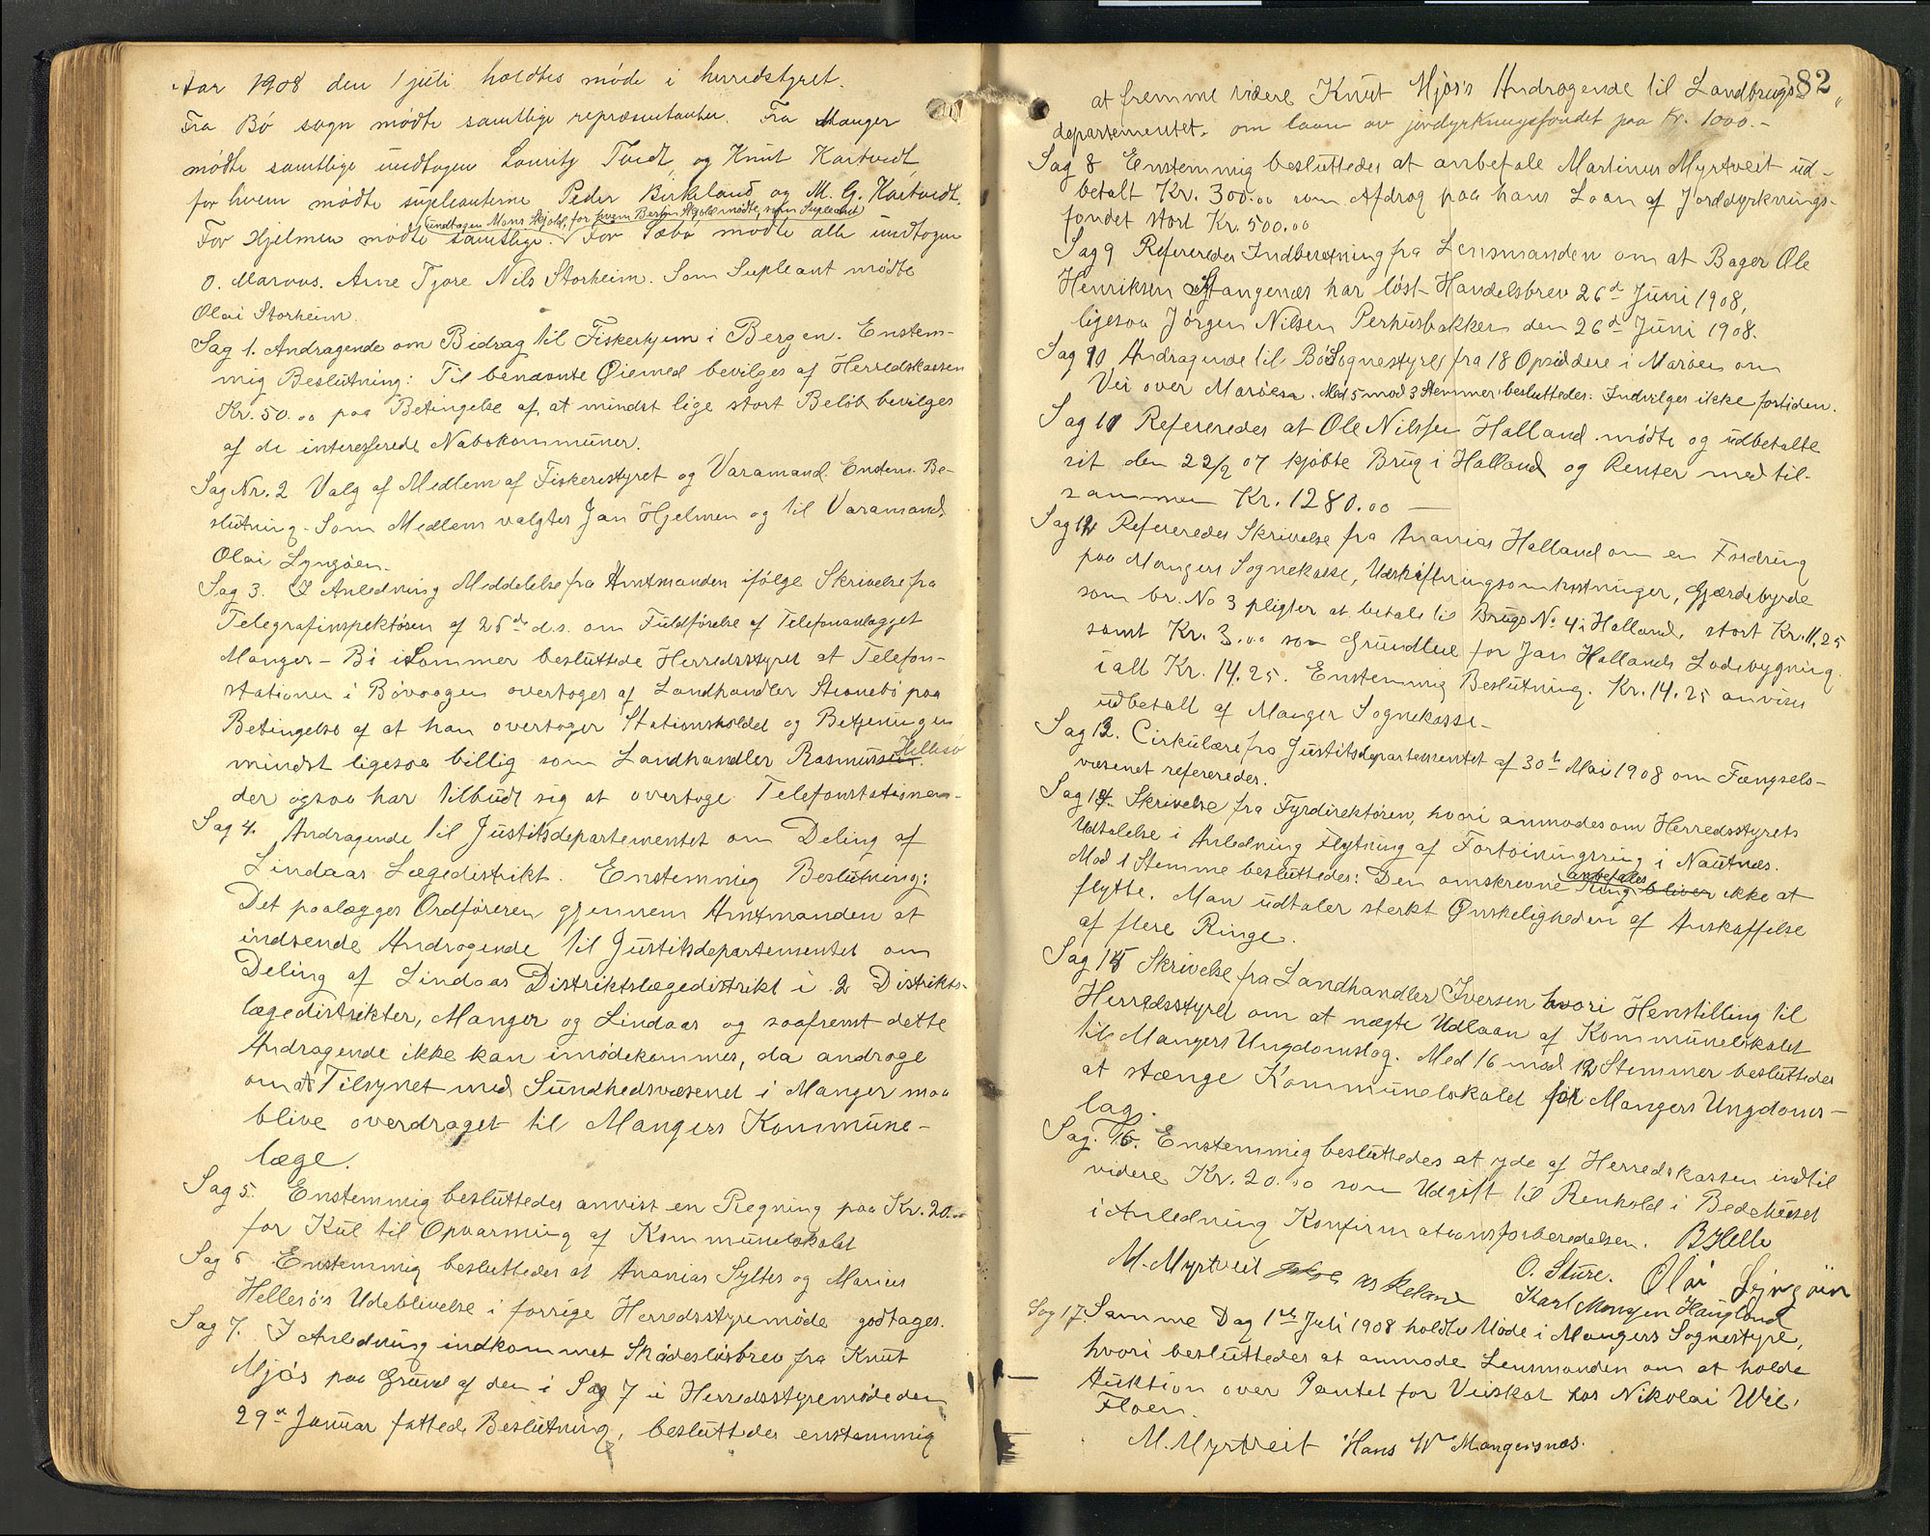 Aar 1908 den 1 juli holdtes møde i herredstyret.
Fra Bø sogn mødte samtlige repræsentanter. Fra Manger
mødte samtlige undtagen Lauritz Tvedt og Knut Kartvedt,
for hvem mødte supleanterne Peder Birkeland og M. G. Kartvedt.
undtagen Mons Skjold, for hvem Berge Skjold mødte som Supleant
For Hjelmen mødte samtlige. For Sæbø mødte alle undtagen
O. Marøos. Arne Tjore Nils Storheim. Som Supleant mødte
Olai Storheim.
Sag 1. Andragende om Bidrag til Fiskerhjem i Bergen. Enstem-
mig Beslutning: Til benævnte Øiemed bevilges af Herredskassen
Kr. 50.00 paa Betingelse af, at mindst lige stort Beløb bevilges
af de interesserede Nabokommuner.
Sag Nr. 2 Valg af Medlem af Fiskerestyret og Varamand. Enstem. Be-
slutning. Som Medlem valgtes Jan Hjelmen og til Varamand
Olai Lyngøen.
Sag 3. I Anledning Meddelelse fra Amtmanden ifølge Skrivelse fra
Telegrafinspektøren af 25de d.s. om Fuldførelse af Telefonanlægget
Manger - Bø i Sommer besluttede Herredsstyret at Telefon-
stationen i Bøvaagen overtages af Landhandler Stenebø paa
Betingelse af at han overtager Stationsholdet og Betjeningen
Hellesø
mindst ligesaa billig som Landhandler Rasmussen.
der ogsaa har tilbudt sig at overtage Telefonstationen.
Sag 4. Andragende til Justitsdepartementet om Deling af
Lindaas Lægedistrikt. Enstemmig Beslutning:
Det paalægges Ordføreren gjennem Amtmanden at
indsende Andragende til Justitsdepartementet om
Deling af Lindaas Distriktslægedistrikt i 2 Distrikts-
lægedistrikter, Manger og Lindaas og saafremt dette
Andragende ikke kan imødekommes, da andrage
om at Tilsynet med Sundhedsvæsenet i Manger maa
blive overdraget til Mangers Kommune-
læge.
Sag 5. Enstemmig besluttedes anvist en Regning paa Kr. 20.00
for Kul til Opvarming af Kommunelokalet
Sag 6 Enstemmig besluttedes at Ananias Syltes og Marius
Hellesø's Udeblivelse i forrige Herredsstyremøde godtages.
Sag 7. I Anledning indkommet Skadesløsbrev fra Knut
Mjøs paa Grund af den i Sag 7 i Herredsstyremøde den
29de Januar fattede Beslutning, besluttedes enstemmig
82
at fremme videre Knut Mjøs's Andragende til Landbrugs-
departementet. om laan av jordyrkningsfondet paa Kr. 1000.-
Sag 8 Enstemmig besluttedes at anbefale Martinus Myrtveit ud-
betalt Kr. 300.00 som Afdrag paa hans Laan af Jorddyrknings-
fondet stort Kr. 500.00
Sag 9 Refereredes Indberetning fra Lensmanden om at Bager Ole
Henriksen Stangenæs har løst Handelsbrev 26de Juni 1908,
ligesaa Jørgen Nilsen Perhusbakken den 26de Juni 1908.
Sag 10 Andragende til Bø Sognestyre fra 18 Opsiddere i Marøen om
Vei over Marøen. Med 5 mod 3 Stemmer besluttedes: Indvilges ikke fortiden.
Sag 11 Refereredes at Ole Nilssen Halland mødte og udbetalte
sit den 22/2 07 kjøbte Brug i Halland og Renter med til-
sammen Kr. 1280.00 —
Sag 12 Refereredes Skrivelse fra Ananias Halland om en Fordring
paa Mangers Sognekasse, Udskiftningsomkostninger, Gjærdebyrde
som br. No 3 pligter at betale til Brugs No. 4 i Halland, stort Kr. 11,25
samt Kr. 3.00 som Grundleie for Jan Hallands Ladebygning
ialt Kr. 14.25. Enstemmig Beslutning. Kr. 14.25 anvises
udbetalt af Manger Sognekasse-
Sag 13. Cirkulære fra Justitsdepartementet af 30te Mai 1908 om Fængsels-
væsenet refereredes.
Sag 14. Skrivelse fra Fyrdirektøren, hvori anmodes om Herredsstyrets
Udtalelse i Anledning Flytning af Fortøiningsring i Nautnes.
anbefales
Mod 1 Stemme besluttedes: Den omskrevne Ring bliver ikke at
flytte. Man udtaler sterkt Ønskeligheden af Anskaffelse
af flere Ringe.
Sag 15 Skrivelse fra Landhandler Iversen hvori Henstilling til
Herredsstyret om at nægte Udlaan af Kommunelokalet
til Mangers Ungdomslag. Med 16 mod 12 Stemmer besluttedes
at stænge Kommunelokalet for Mangers Ungdoms-
lag.
Sag. 16. Enstemmig besluttedes at yde af Herredskassen indtil
videre Kr. 20.00 som Udgift til Renhold i Bedehuset
i Anledning Konfirmationsforberedelsen. B Helle
M. Myrtveit O. Sture. Olai Lyngøen
Askeland Karl Monsen Haugland
Sag 17. Samme Dag 1ste Juli 1908 holdtes Møde i Mangers Sognestyre,
hvori besluttedes at anmode Lensmanden om at holde
Auktion over Pantet for Veiskat hos Nikolai Wil.
Floen.
M. Myrtveit Hans W Mangersnæs.